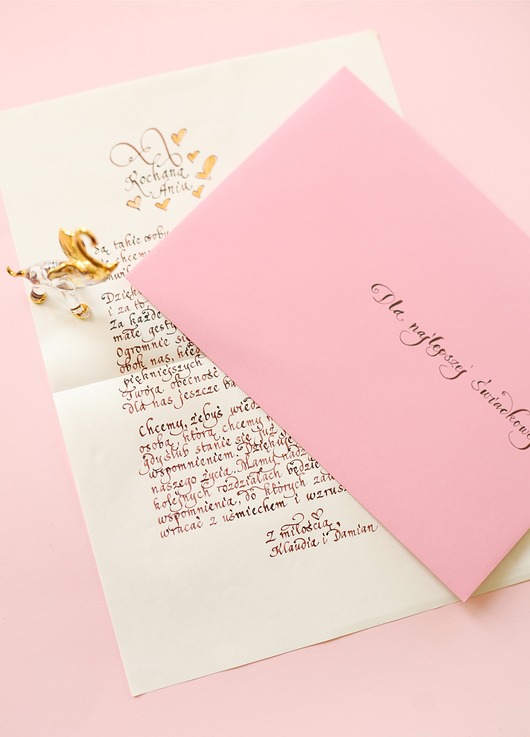 Kochana
Ania
są takie osoby
chcemy
Dzięku
i za to,
za każde
małe gesty
Ogromnie się
obok nas, kied
piękniejszych
Twoja obecność
dla nas jeszcze ba
Chcemy, żebyś wiedz
osoba, którą chcemy m
gdy ślub stanie się już
wspomnieniem. Dziękuje
naszego życia. Mamy nadz
kolejnych rozdziałach będzie
wspomnienia, do których zaw
wracać z uśmiechem i wzrus
Z miłością,
Klaudia i Damian
Dla najlepszej świadkowej